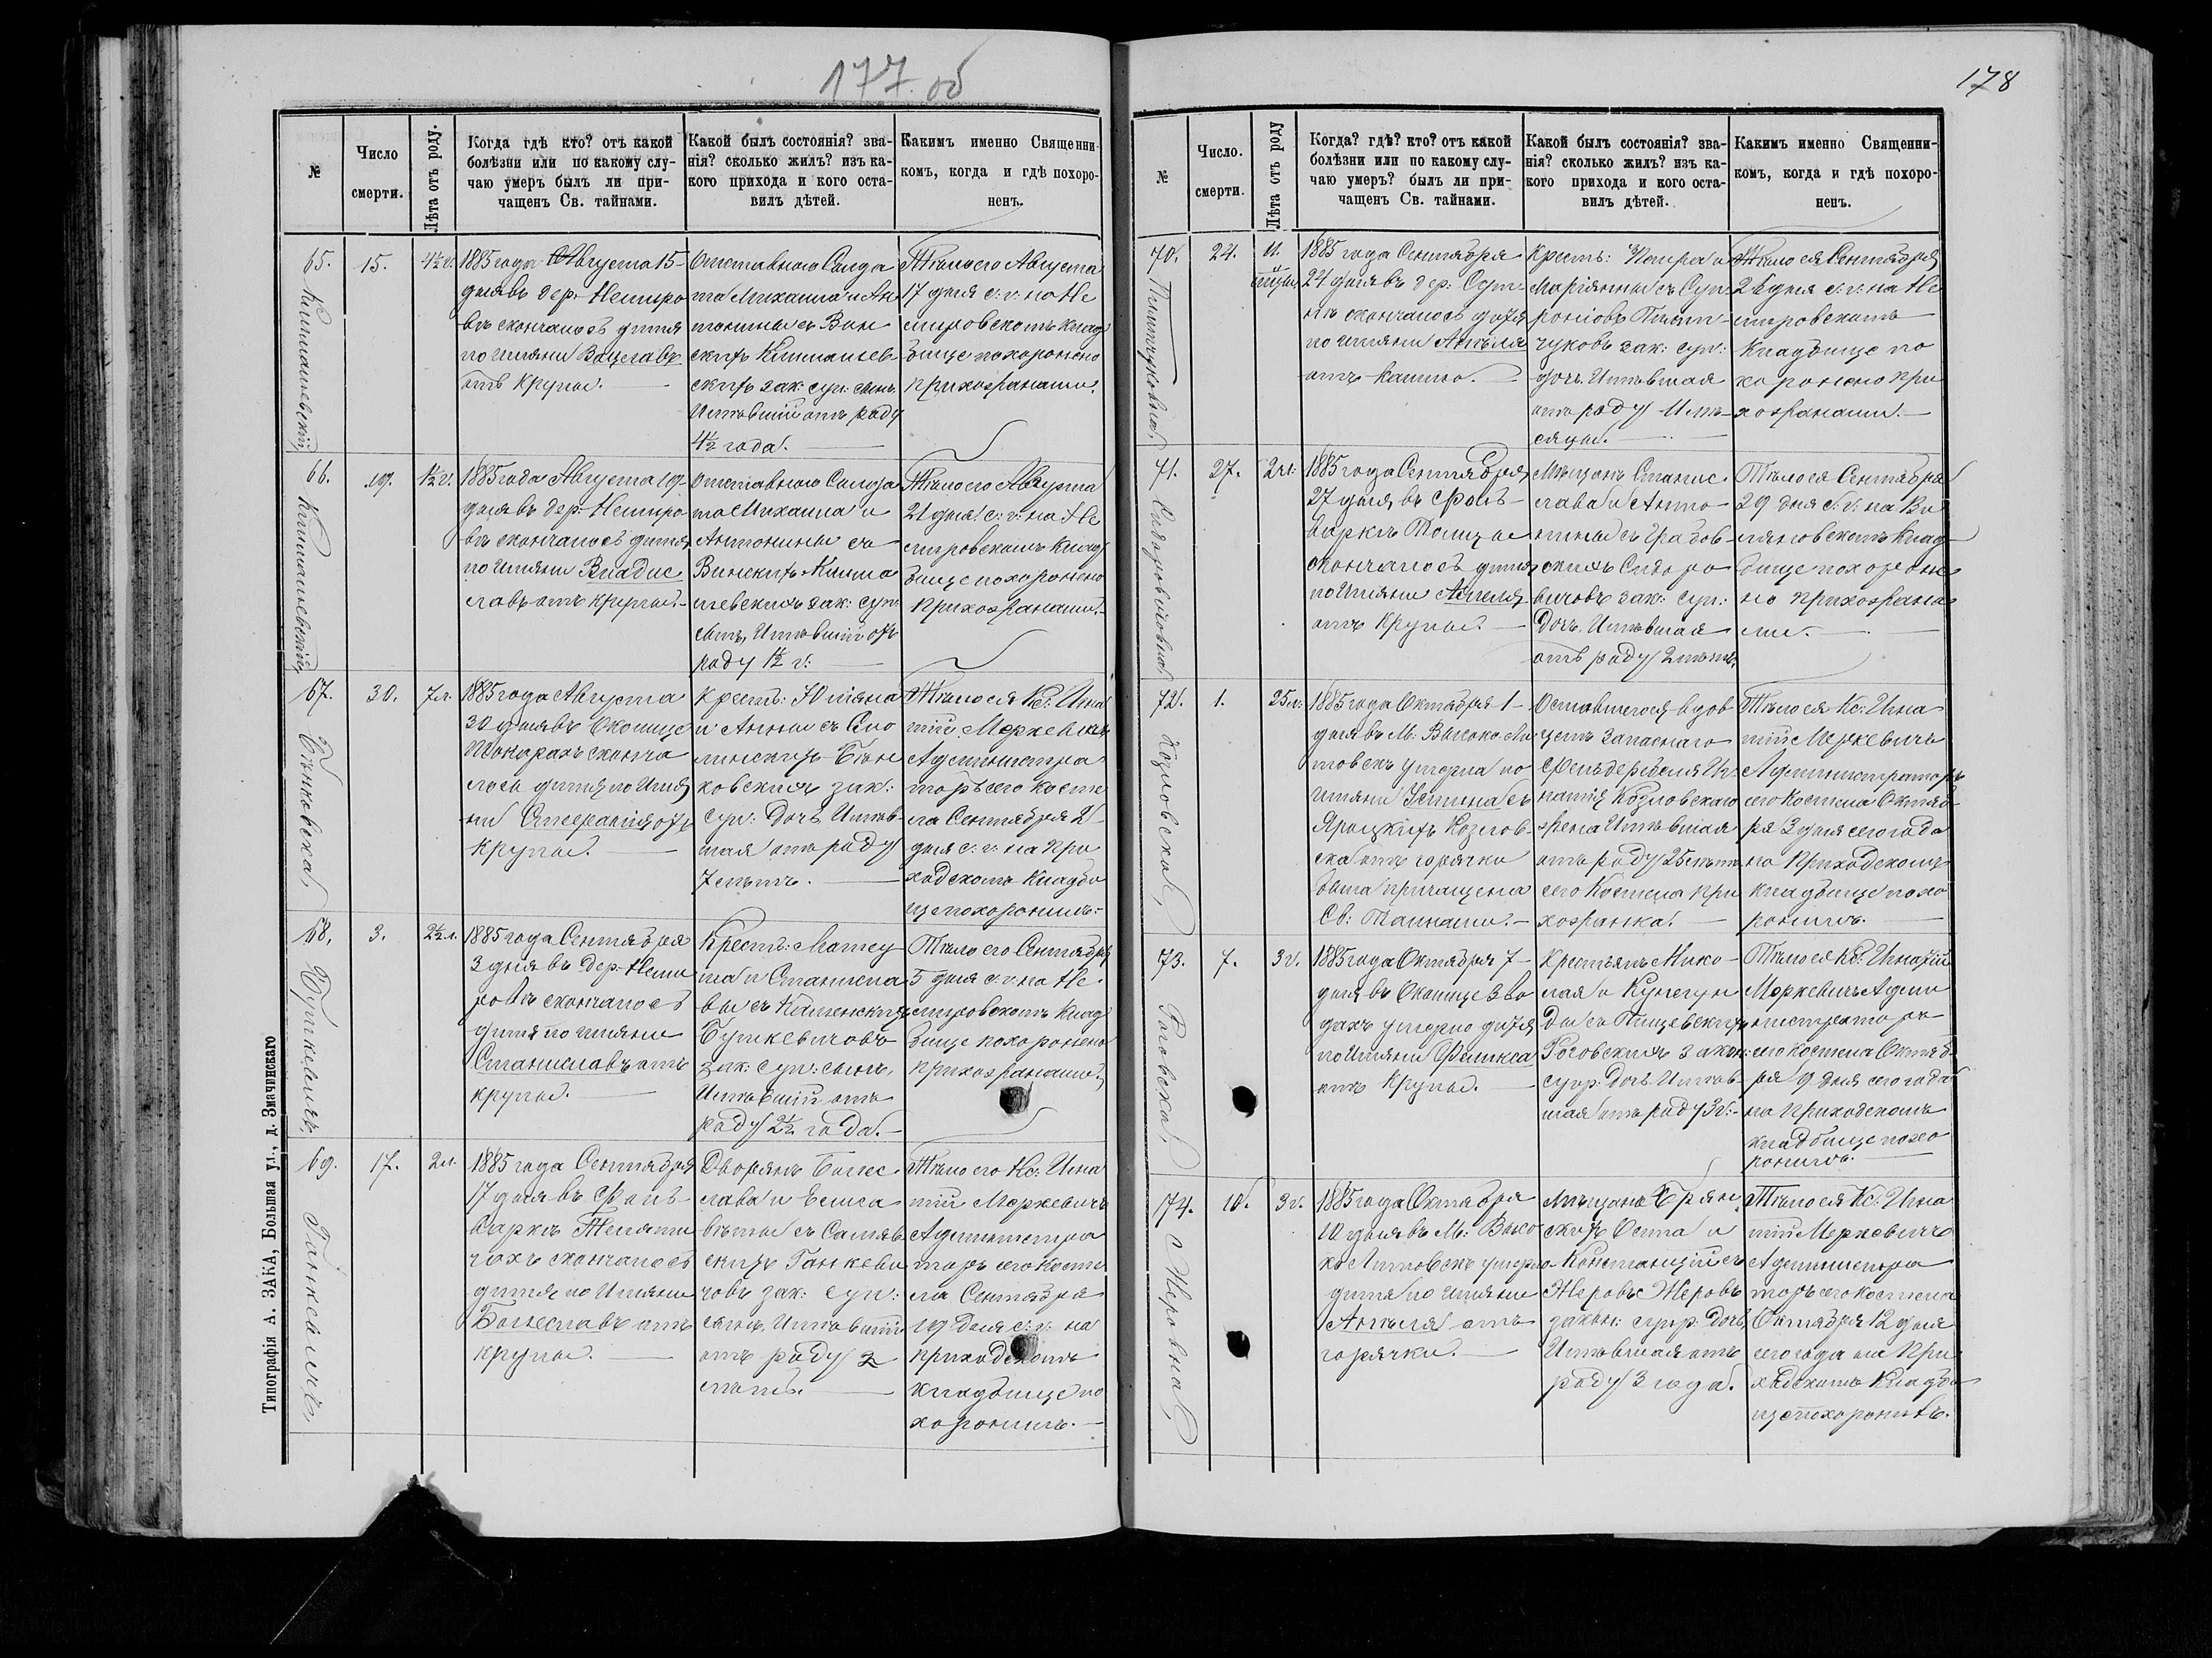 177 об
№
Число
смерти.
Лѣта отъ роду.
Когда гдѣ кто? отъ какой
болѣзни или по какому слу-
чаю умеръ былъ ли при-
чащенъ Св. тайнами.
Какой былъ состоянія? зва-
нія? сколько жилъ? изъ ка-
кого прихода и кого оста-
вилъ дѣтей.
Каким именно Священни-
комъ, когда и гдѣ похоро-
ненъ.
65.
15.
4½ г.
1885 года Августа 15-
дня въ дер. Неми́ро
вѣ скончалось дитя
по имяни Вацславъ
отъ крупы.
Отставного Салда
та Михаила и Ан
тонины съ Вин
скихъ
скихъ зак: суп: сынъ.
Имѣвшій отъ роду
4½ года.
Тѣло его Августа
17 дня с: г: на Не
мировскомъ клад
бище похоронено
прихожанами.
66.
19.
1½ г.
1885 года Августа 19
дня въ дер. Немиро
вѣ скончалось дитя
по имяни Владис
лавъ отъ крупы.
Отставного Салда
та Михаила и
Антонины съ
Винскихъ
зак: суп:
сынъ, Имѣвшій отъ
роду 1½ г:
Тѣло его Августа
21 дня с: г: на Не
мировскомъ клад
бище похоронено
прихожанами.
67.
30.
7 л.
1885 года Августа
30 дня въ Околице
сконча
лось дитя по имя
ни отъ
крупы.
Крест: Юліяна
и Анны съ
зак:
суп: Дочь Имѣв
шая отъ роду
7 лѣтъ.
Тѣло ея Кс: Игна
тій Меркевичъ
Администра
торъ сего Косте
ла Сентября 2
дня с: г: на При
ходскомъ кладби
ще похоронилъ.
68.
3.
2½ г.
1885 года Сентября
3 дня въ дер. Неми
ровѣ скончалось
дитя по имяни
Станиславъ отъ
крупы.
Крест: Матеу
ша и Станисла
вы съ Каменскихъ
Буткевичовъ
зак: суп: сынъ,
Имѣвшій отъ
роду 2½ года.
Тѣло его Сентября
5 дня с: г: на Не
мировскомъ клад
бище похоронено
прихожанами.
Буткевичъ.
69.
17.
2 л.
1885 года Сентября
17 дня въ Фоль
варкѣ
скончалось
дитя по имяни
Болеславъ отъ
крупы.
Дворянъ Болес
лава и Елиса
веты съ
скихъ Ганкеви
човъ зак: суп:
сынъ, Имѣвшій
отъ роду 2
лѣтъ.
Тѣло его Кс: Игна
тій Меркевичъ
Администра
торъ сего Косте
ла Сентября
19 дня с: г: на
приходскомъ
кладбище по
хоронилъ.
Ганкевичъ,
Типографія А. ЗАКА, Большая ул., д. Значинскаго
178
№
Число.
смерти.
Лѣта отъ роду
Когда? гдѣ? кто? отъ какой
болѣзни или по какому слу-
чаю умеръ? былъ ли при-
чащенъ Св. тайнами.
Какой былъ состоянія? зва-
нія? сколько жилъ? изъ ка-
кого прихода и кого оста-
вилъ дѣтей.
Каким именно Священни-
комъ, когда и гдѣ похоро-
ненъ.
70.
24.
1885 года Сентября
24 дня въ дер:
скончалось дитя
по имяни Анѣля
отъ кашлю.
Крест: Петра и
Маріянны съ
зак: суп:
дочь. Имѣвшая
отъ роду 11 мѣ
сяцы.
Тѣло ея Сентября
26 дня с: г: на Не
мировскомъ
Кладбище по
хоронено при
хожанами.
71.
27.
2 л:
1885 года Сентября
27 дня, въ Фоль-
варкѣ
скончалось дитя
по имяни
отъ крупы.
Мѣщанъ Станис
лава и Анто
нины съ Грабов
скихъ Сидоро
вичовъ зак: суп:
Дочь, Имѣвшая
отъ роду 2 лѣтъ.
Тѣло ея Сентября
29 дня с: г: на
клад-
бище похороне
но прихожана
ми.
Сидоровичовна
72.
1.
25 л:
1885 года Октября 1-
дня въ М: Высоко Ли
товскѣ умерла по
имяни Устина съ
Козлов
ска отъ горячки
была причащена
Св: Тайнами.
Оставшегося вдов
цемъ Запаснаго
Фельдфебеля Иг
натія Козловскаго
жена Имѣвшая
отъ роду 25 лѣтъ
сего Костела при
хожанка.
Тѣло ея Кс: Игна
тій Меркевичъ
Администраторъ
сего Костела Октяб
ря 3 дня сего года
на Приходскомъ
кладбище похо
ронилъ.
Козловска,
73.
7.
3 г.
1885 года Октября 7-
дня въ Околице Зво
дахъ умерло дитя
по имяни Фелікса
отъ крупы.
Крестьянъ Мико
лая и Кунегун
ды съ
Роговскихъ закон:
супр: Дочь Имѣв
шая отъ роду 3 г:
Тѣло ея Кс: Игнатій
Меркевичъ Адми
нистраторъ
сего Костела Октяб
ря 9 дня сего года
на Приходскомъ
кладбище похо
ронилъ.
Роговска,
74.
10.
3 г.
1885 года Октября
10 дня въ М: Высо
ко Литовскѣ умерло
дитя по имяни
Анѣля отъ
горячки.
Мѣщанъ Брян
скихъ Осипа и
Констанціи съ
Жеровъ Жеровъ
закон: супр: Дочь,
Имѣвшая отъ
роду 3 года.
Тѣло ея Кс: Игна
тій Меркевичъ
Администра
торъ сего Костела
Октября 12 дня
сего года на При
ходскомъ кладби
ще похоронилъ.
Жеровна,